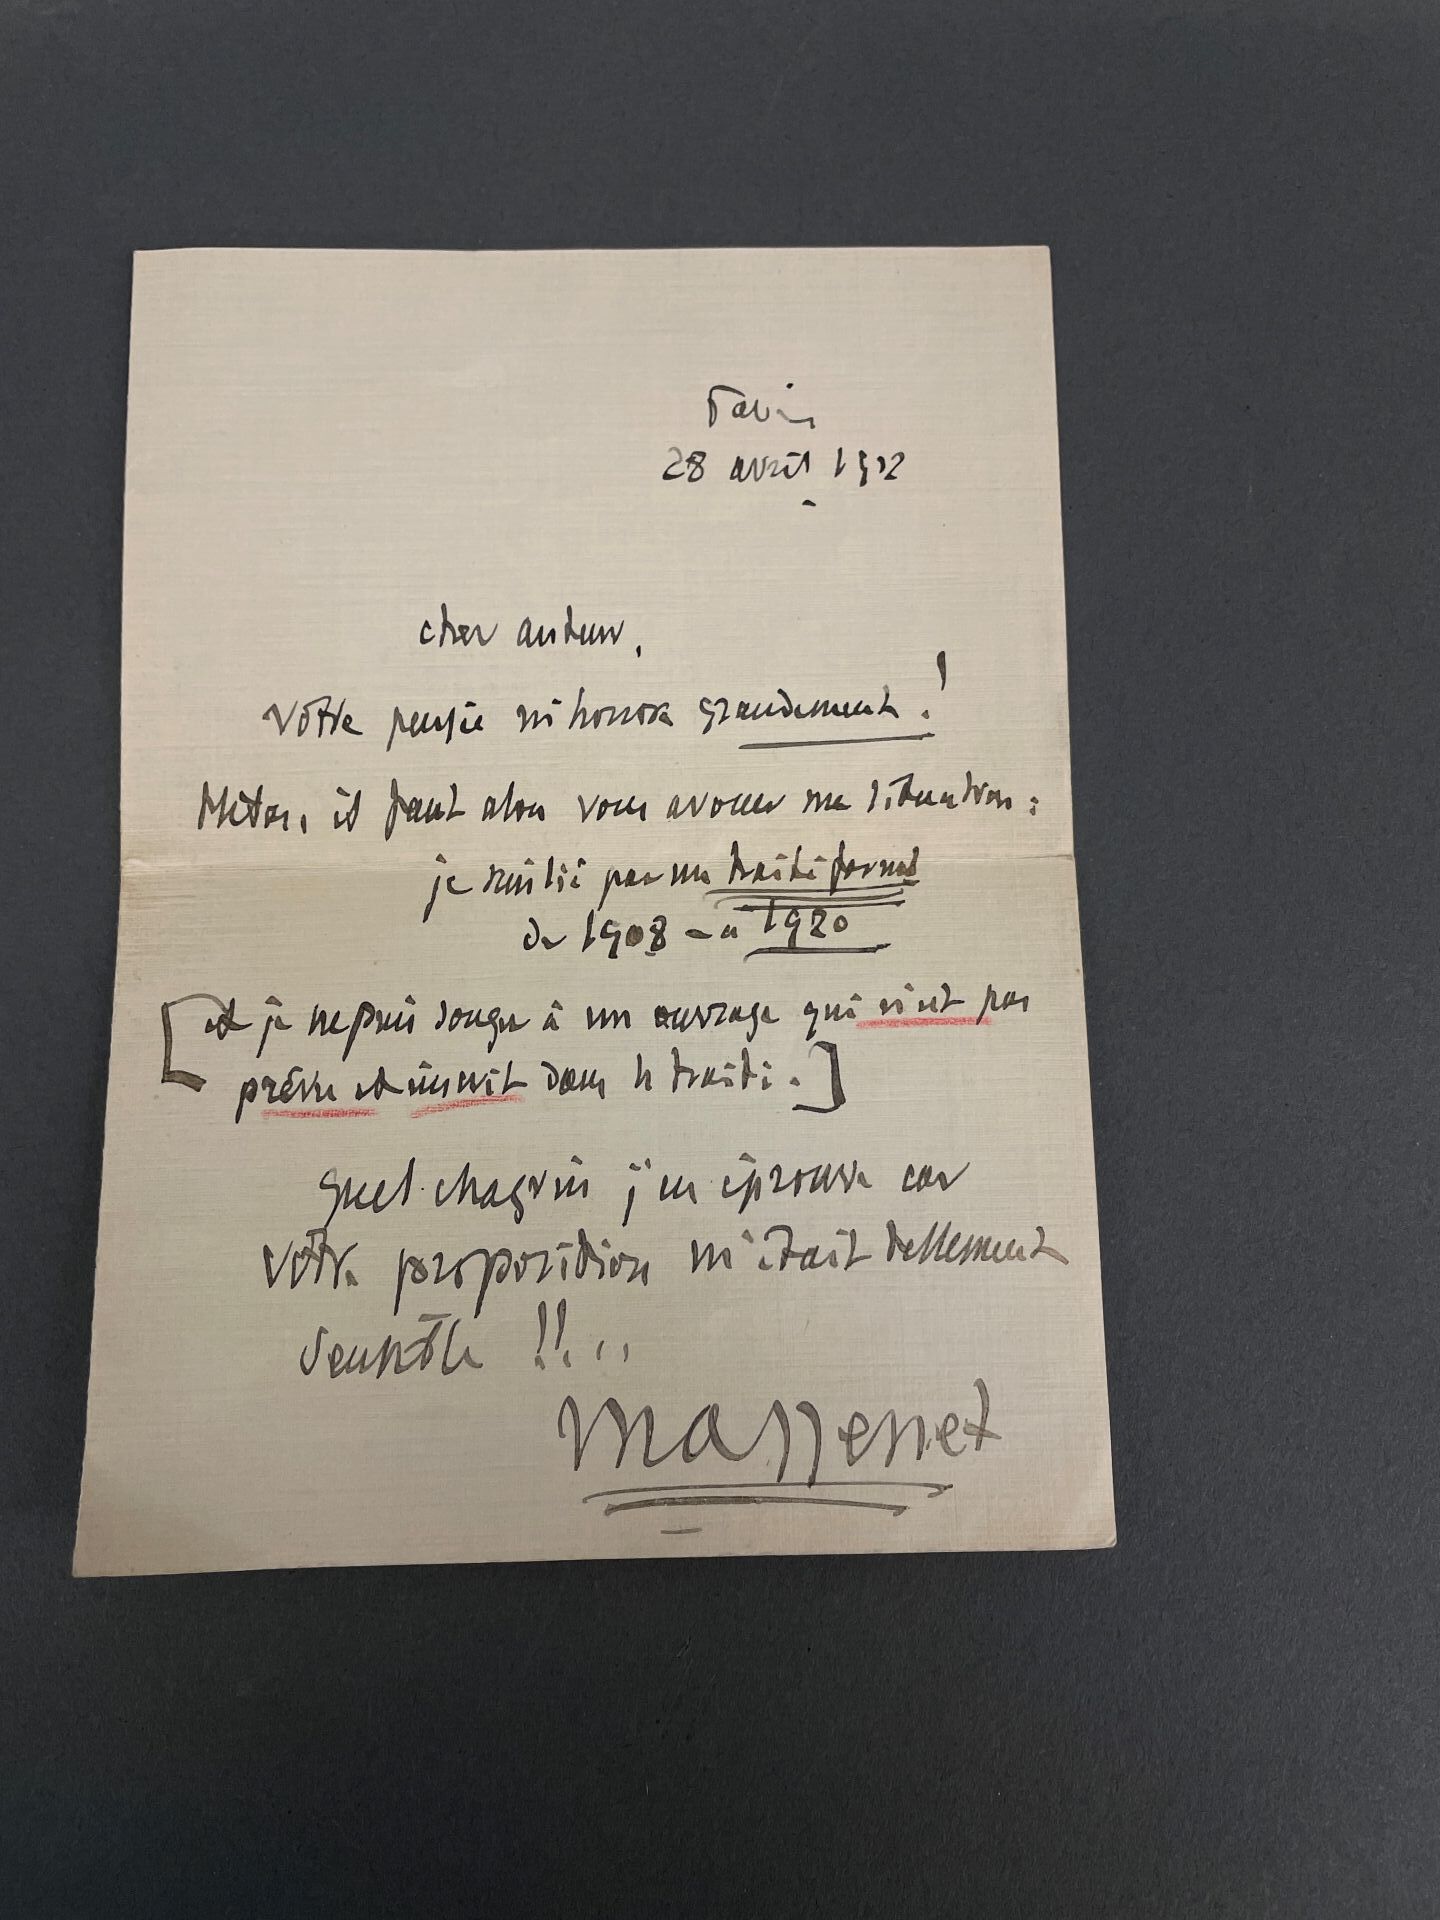 Paris
28 avril 1912
cher auteur,
Votre pensée m'honore grandement !
Hélas, il faut alors vous avouer ma situation :
je suis lié par un traité formel
de 1908 - à 1920
[et je ne puis songer à un ouvrage qui n'est pas
prévu et inscrit dans le traité.]
Quel chagrin j'en éprouve car
votre proposition m'était tellement
sensible !!...
Massenet